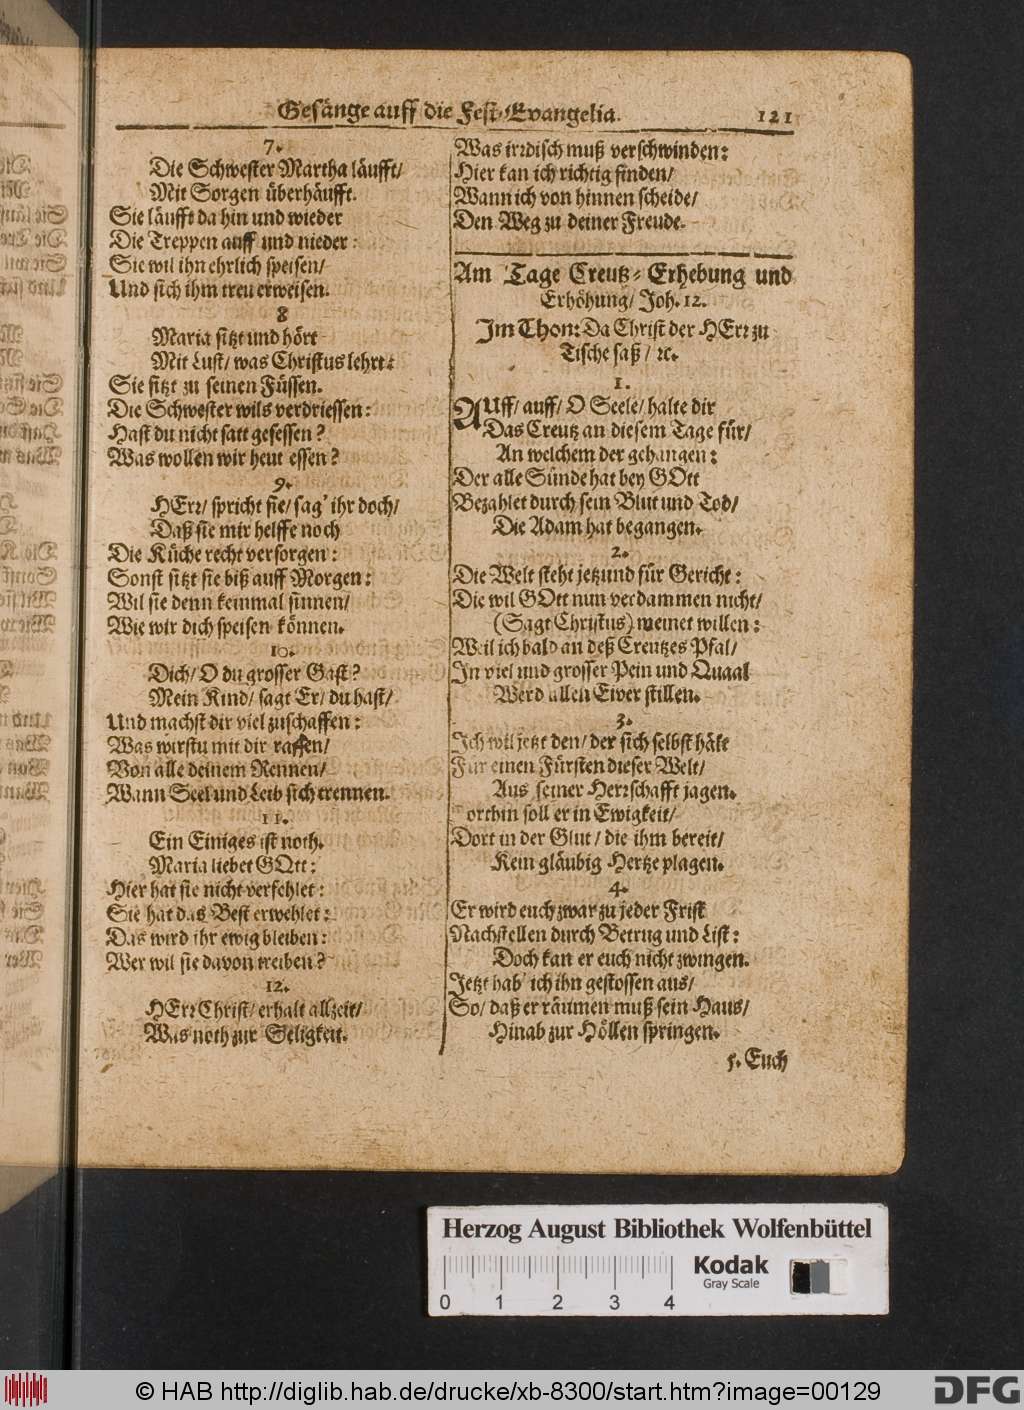 Gesänge auff die Fest-Evangelia. 121
7.
Die Schwester Martha läufft/
Mit Sorgen überhäufft.
Sie läufft da hin und wieder
Die Treppen auff und nieder:
Sie wil ihn ehrlich speisen/
Und sich ihm treu erweisen.
8
Maria sitzt und hört
Mit Lust/ was Christus lehrt:
Sie sitzt zu seinen Füssen.
Die Schwester wils verdriessen:
Hast du nicht satt gesessen?
Was wollen wir heut essen?
9.
HErr/ spricht sie/ sag' ihr doch/
Daß sie mir helffe noch
Die Küche recht versorgen:
Sonst sitzt sie biß auff Morgen:
Wil sie denn keinmal sinnen/
Wie wir dich speisen können.
10.
Dich/ O du grosser Gast?
Mein Kind/ sagt Er/ du hast/
Und machst dir viel zuschaffen:
Was wirstu mit dir raffen/
Von alle deinem Rennen/
Wann Seel und Leib sich trennen.
11.
Ein Einiges ist noth.
Maria liebet GOtt:
Hier hat sie nicht verfehlet:
Sie hat das Best erwehlet:
Das wird ihr ewig bleiben:
Wer wil sie davon treiben?
12.
HErr Christ/ erhalt allzeit/
Was noth zur Seligkeit.
Was irrdisch muß verschwinden:
Hier kan ich richtig finden/
Wann ich von hinnen scheide/
Den Weg zu deiner Freude.
Am Tage Creutz-Erhebung und
Erhöhung/ Joh. 12.
Im Thon: Da Christ der HErr zu
Tische saß/ ꝛc.
1.
AUff/ auff/ O Seele/ halte dir
Das Creutz an diesem Tage für/
An welchem der gehangen:
Der alle Sünde hat bey GOtt
Bezahlet durch sein Blut und Tod/
Die Adam hat begangen.
2.
Die Welt steht jetzund für Gericht:
Die wil GOtt nun verdammen nicht/
(Sagt Christus) meinet willen:
Weil ich bald an deß Creutzes Pfal/
In viel und grosser Pein und Quaal
Werd allen Eiver stillen.
3.
Ich wil jetzt den/ der sich selbst hält
Für einen Fürsten dieser Welt/
Aus seiner Herrschafft jagen.
orthin soll er in Ewigkeit/
Dort in der Glut/ die ihm bereit/
Kein gläubig Hertze plagen.
4.
Er wird euch zwar zu jeder Frist
Nachstellen durch Betrug und List:
Doch kan er euch nicht zwingen.
Jetzt hab' ich ihn gestossen aus/
So/ daß er räumen muß sein Haus/
Hinab zur Höllen springen.
5. Euch
Herzog August Bibliothek Wolfenbüttel
Kodak
Gray Scale
0 1 2 3 4
© HAB http://diglib.hab.de/drucke/xb-8300/start.htm?image=00129
DFG